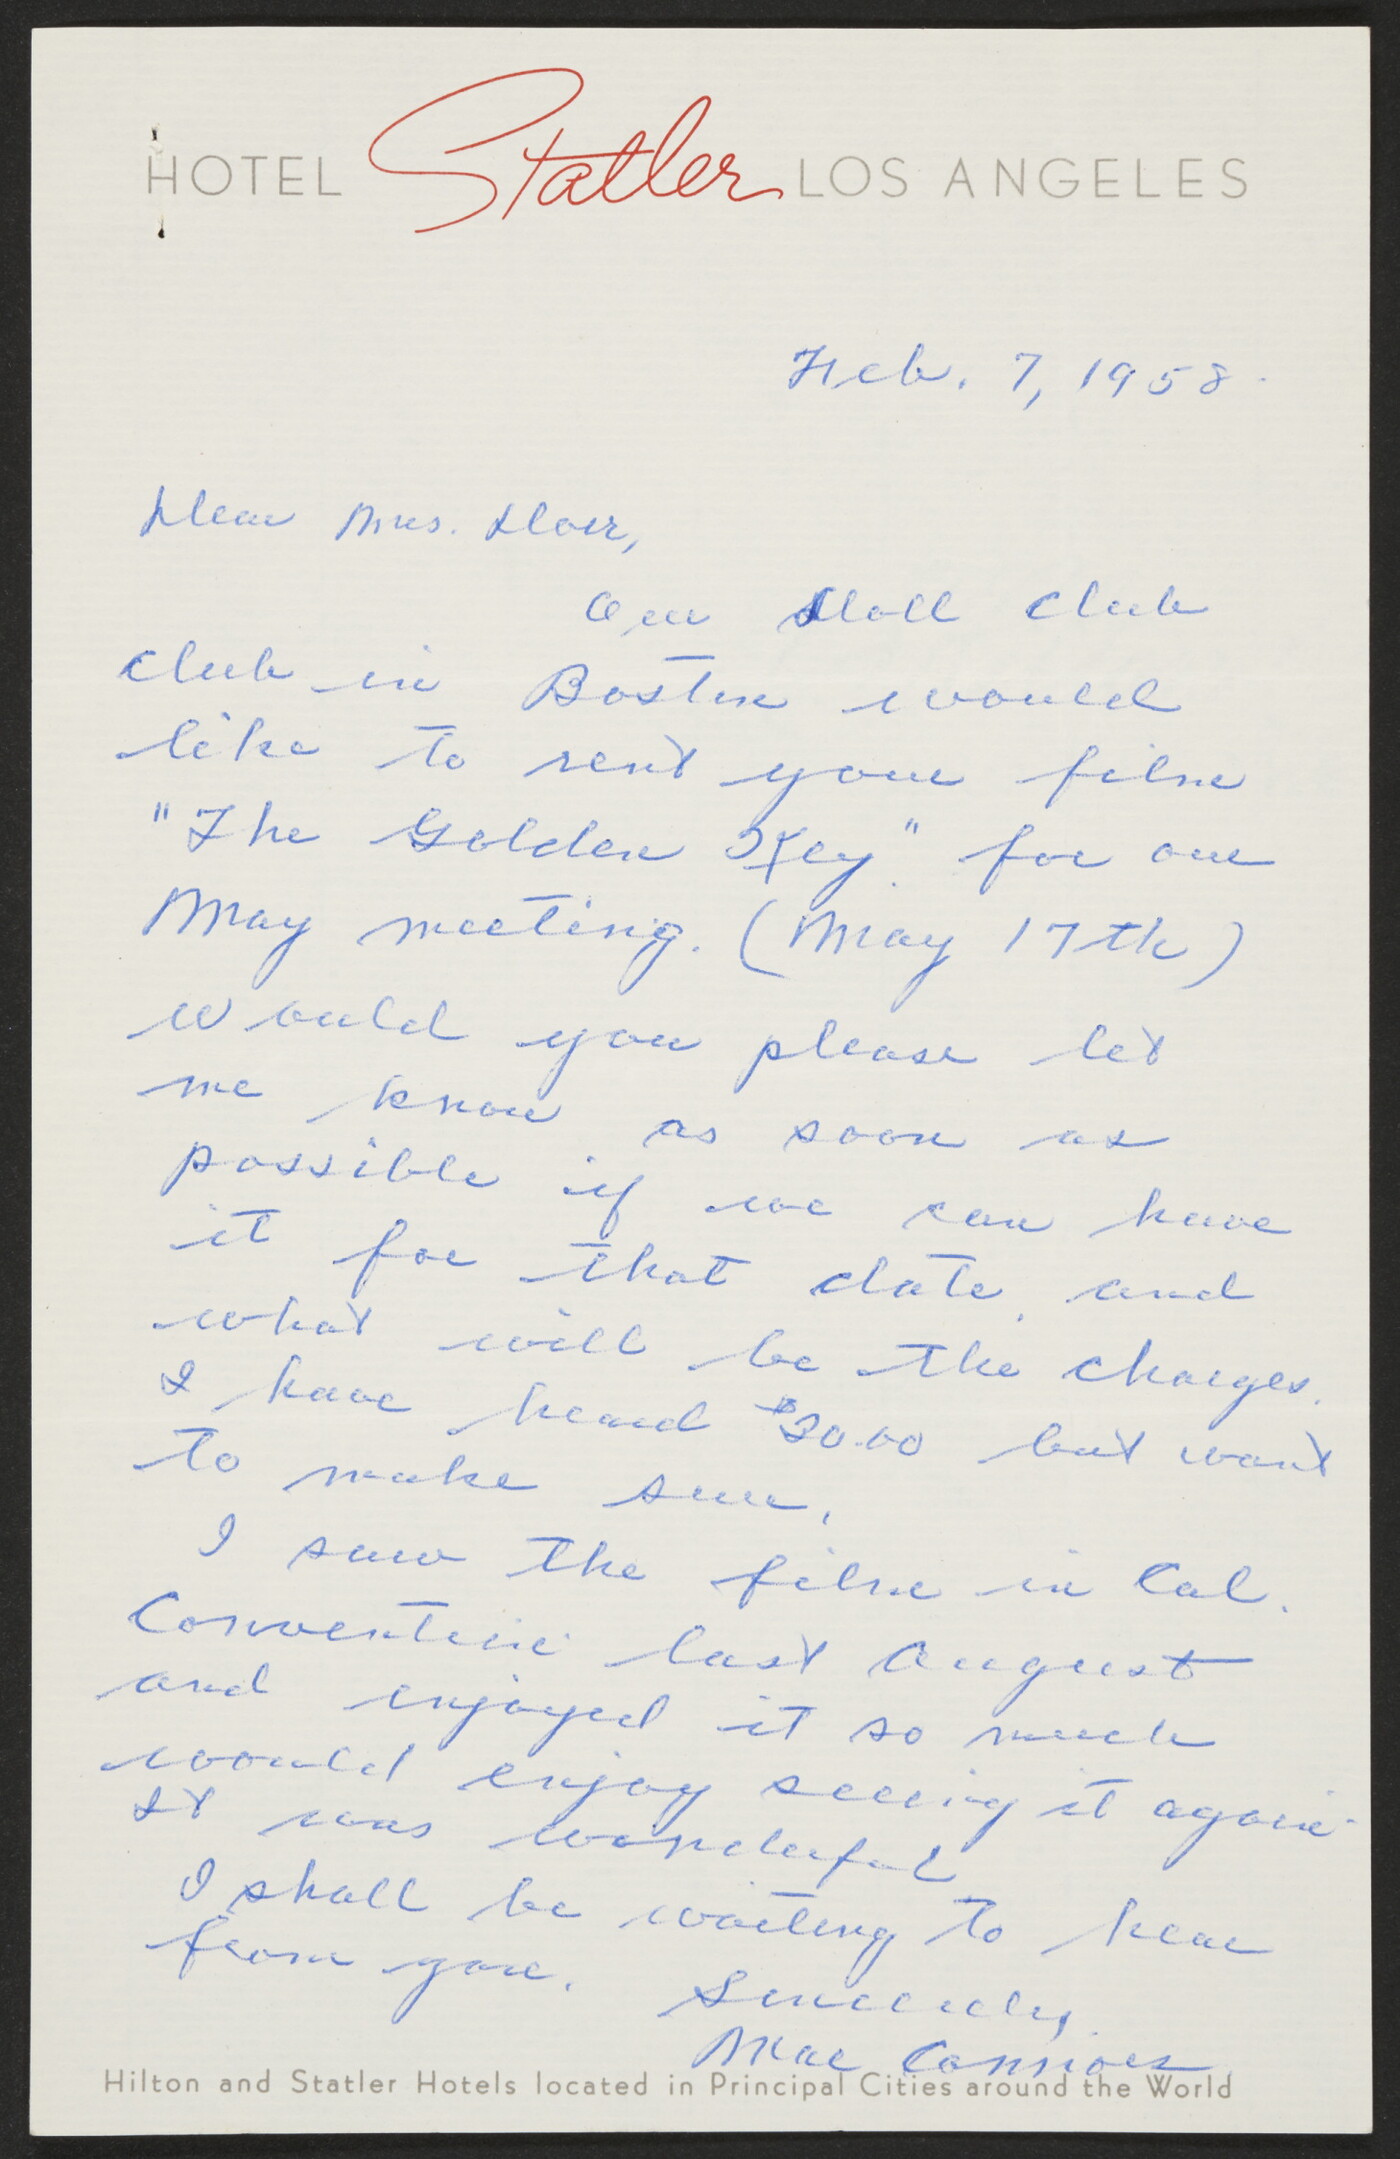 HOTEL Statler LOS ANGELES
Feb. 7, 1958.
Dear Mrs. Dorr,
Our Doll Club
Club in Boston would
like to rent your film
"The Golden Key" for our
May meeting. (May 17th)
Would you please let
me know as soon as
possible if we can have
it for that date, and
what will be the charges.
I have heard $30.00 but want
to make sure.
I saw the film in Cal.
Convention last August
and enjoyed it so much
would enjoy seeing it again.
It was wonderful
I shall be waiting to hear
from you.
Sincerely,
Mae Connors
Hilton and Statler Hotels located in Principal Cities around the World